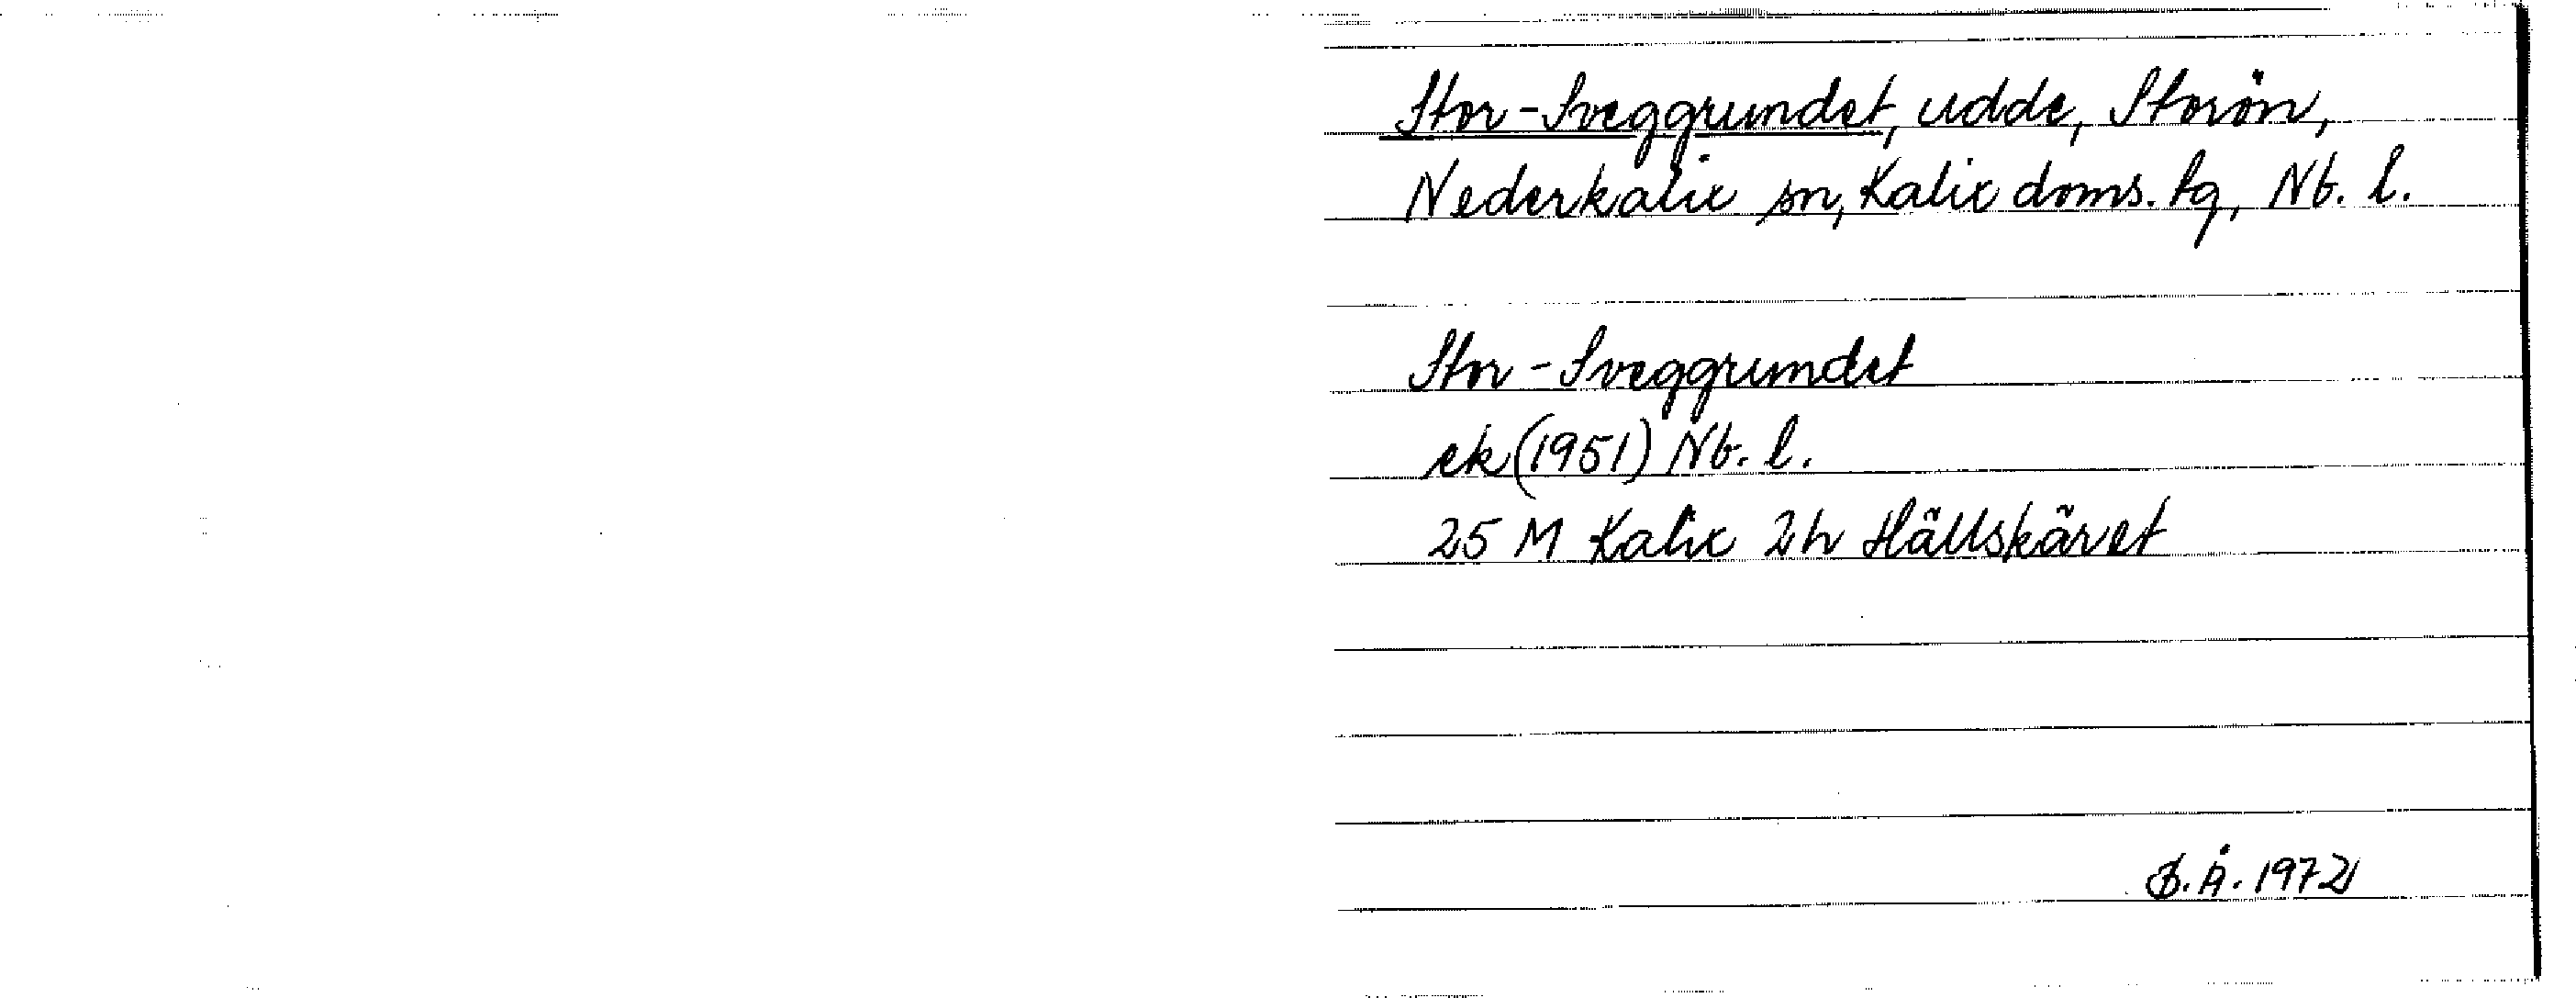 Stor-Sveggrundet, udde, Storön,
Nederkalix sn, Kalix doms. tg, Nb. l.
Stor-Sveggrundet
ek (1951) Nb. l.
25 M Kalix 2h Hällskäret
B.Å. 1972